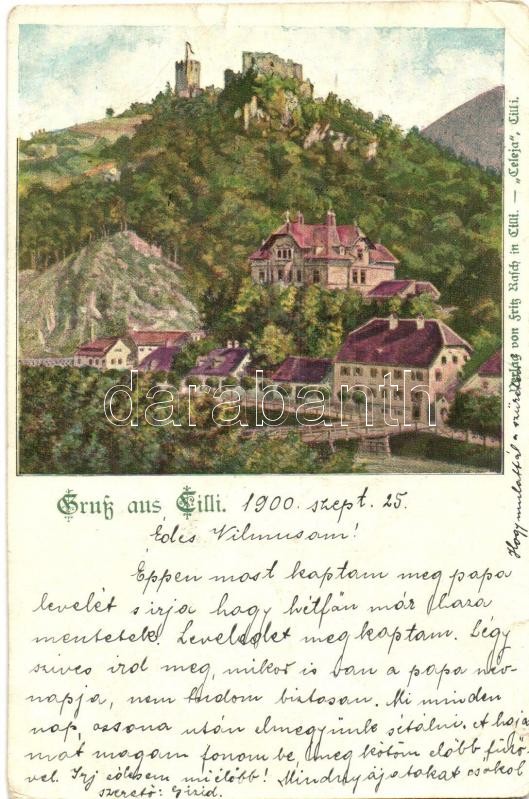 Verlag von Fritz Rasch in Cilli. — „Celeja“, Cilli.
darabanth
Gruß aus Cilli. 1900. szept. 25.
Édes Vilmusom!
Éppen most kaptam meg papa
levelét s irja hogy hétfőn már haza
mentetek. Leveledet megkaptam. Légy
szives ird meg, mikor is van a papa név-
napja, nem tudom biztosan. Mi minden
nap, ozsona után elmegyünk sétálni. A haja
mat magam fonom be, meg kötöm előbb fűző
vel. Irj édesem mielőbb! Mindnyájatokat csókol
szerető: Gizid.
Hogy mulattál a szüreten